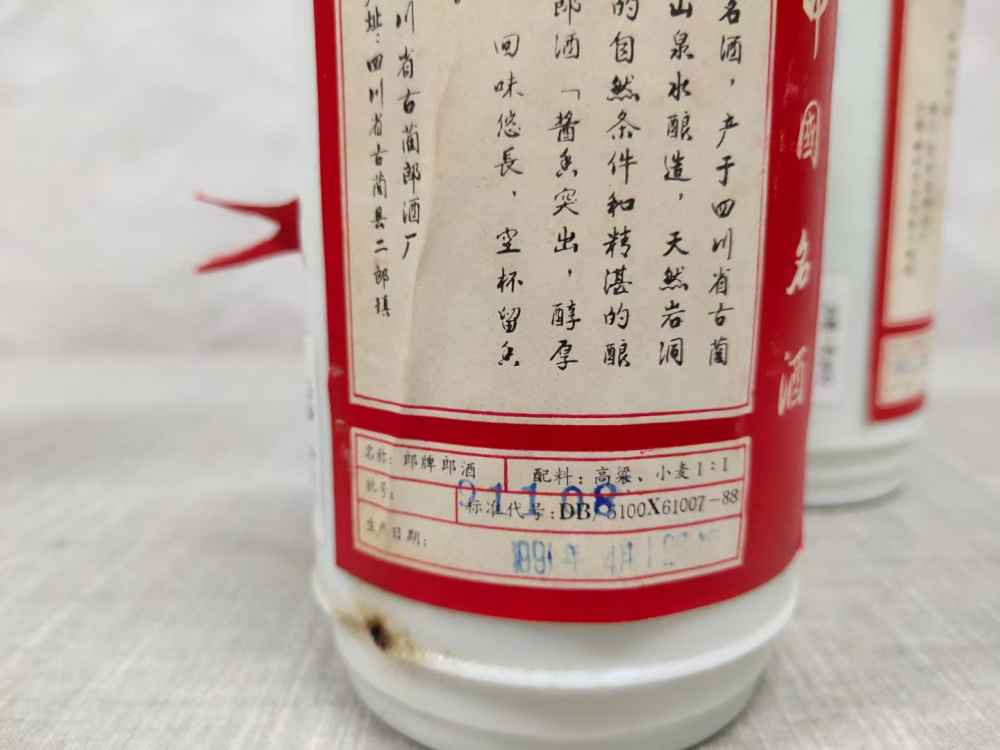 中國名酒
名酒，产于四川省古藺
山泉水釀造，天然岩洞
的自然条件和精湛的酿
郎酒「酱香突出，醇厚
回味悠長，空杯留香
川省古藺郎酒厂
址：四川省古藺县二郎镇
名称：郎牌郎酒
配料：高粱、小麦1：1
批号：
911108
标准代号：DB/5100X61007-88
生产日期：
1991年4月